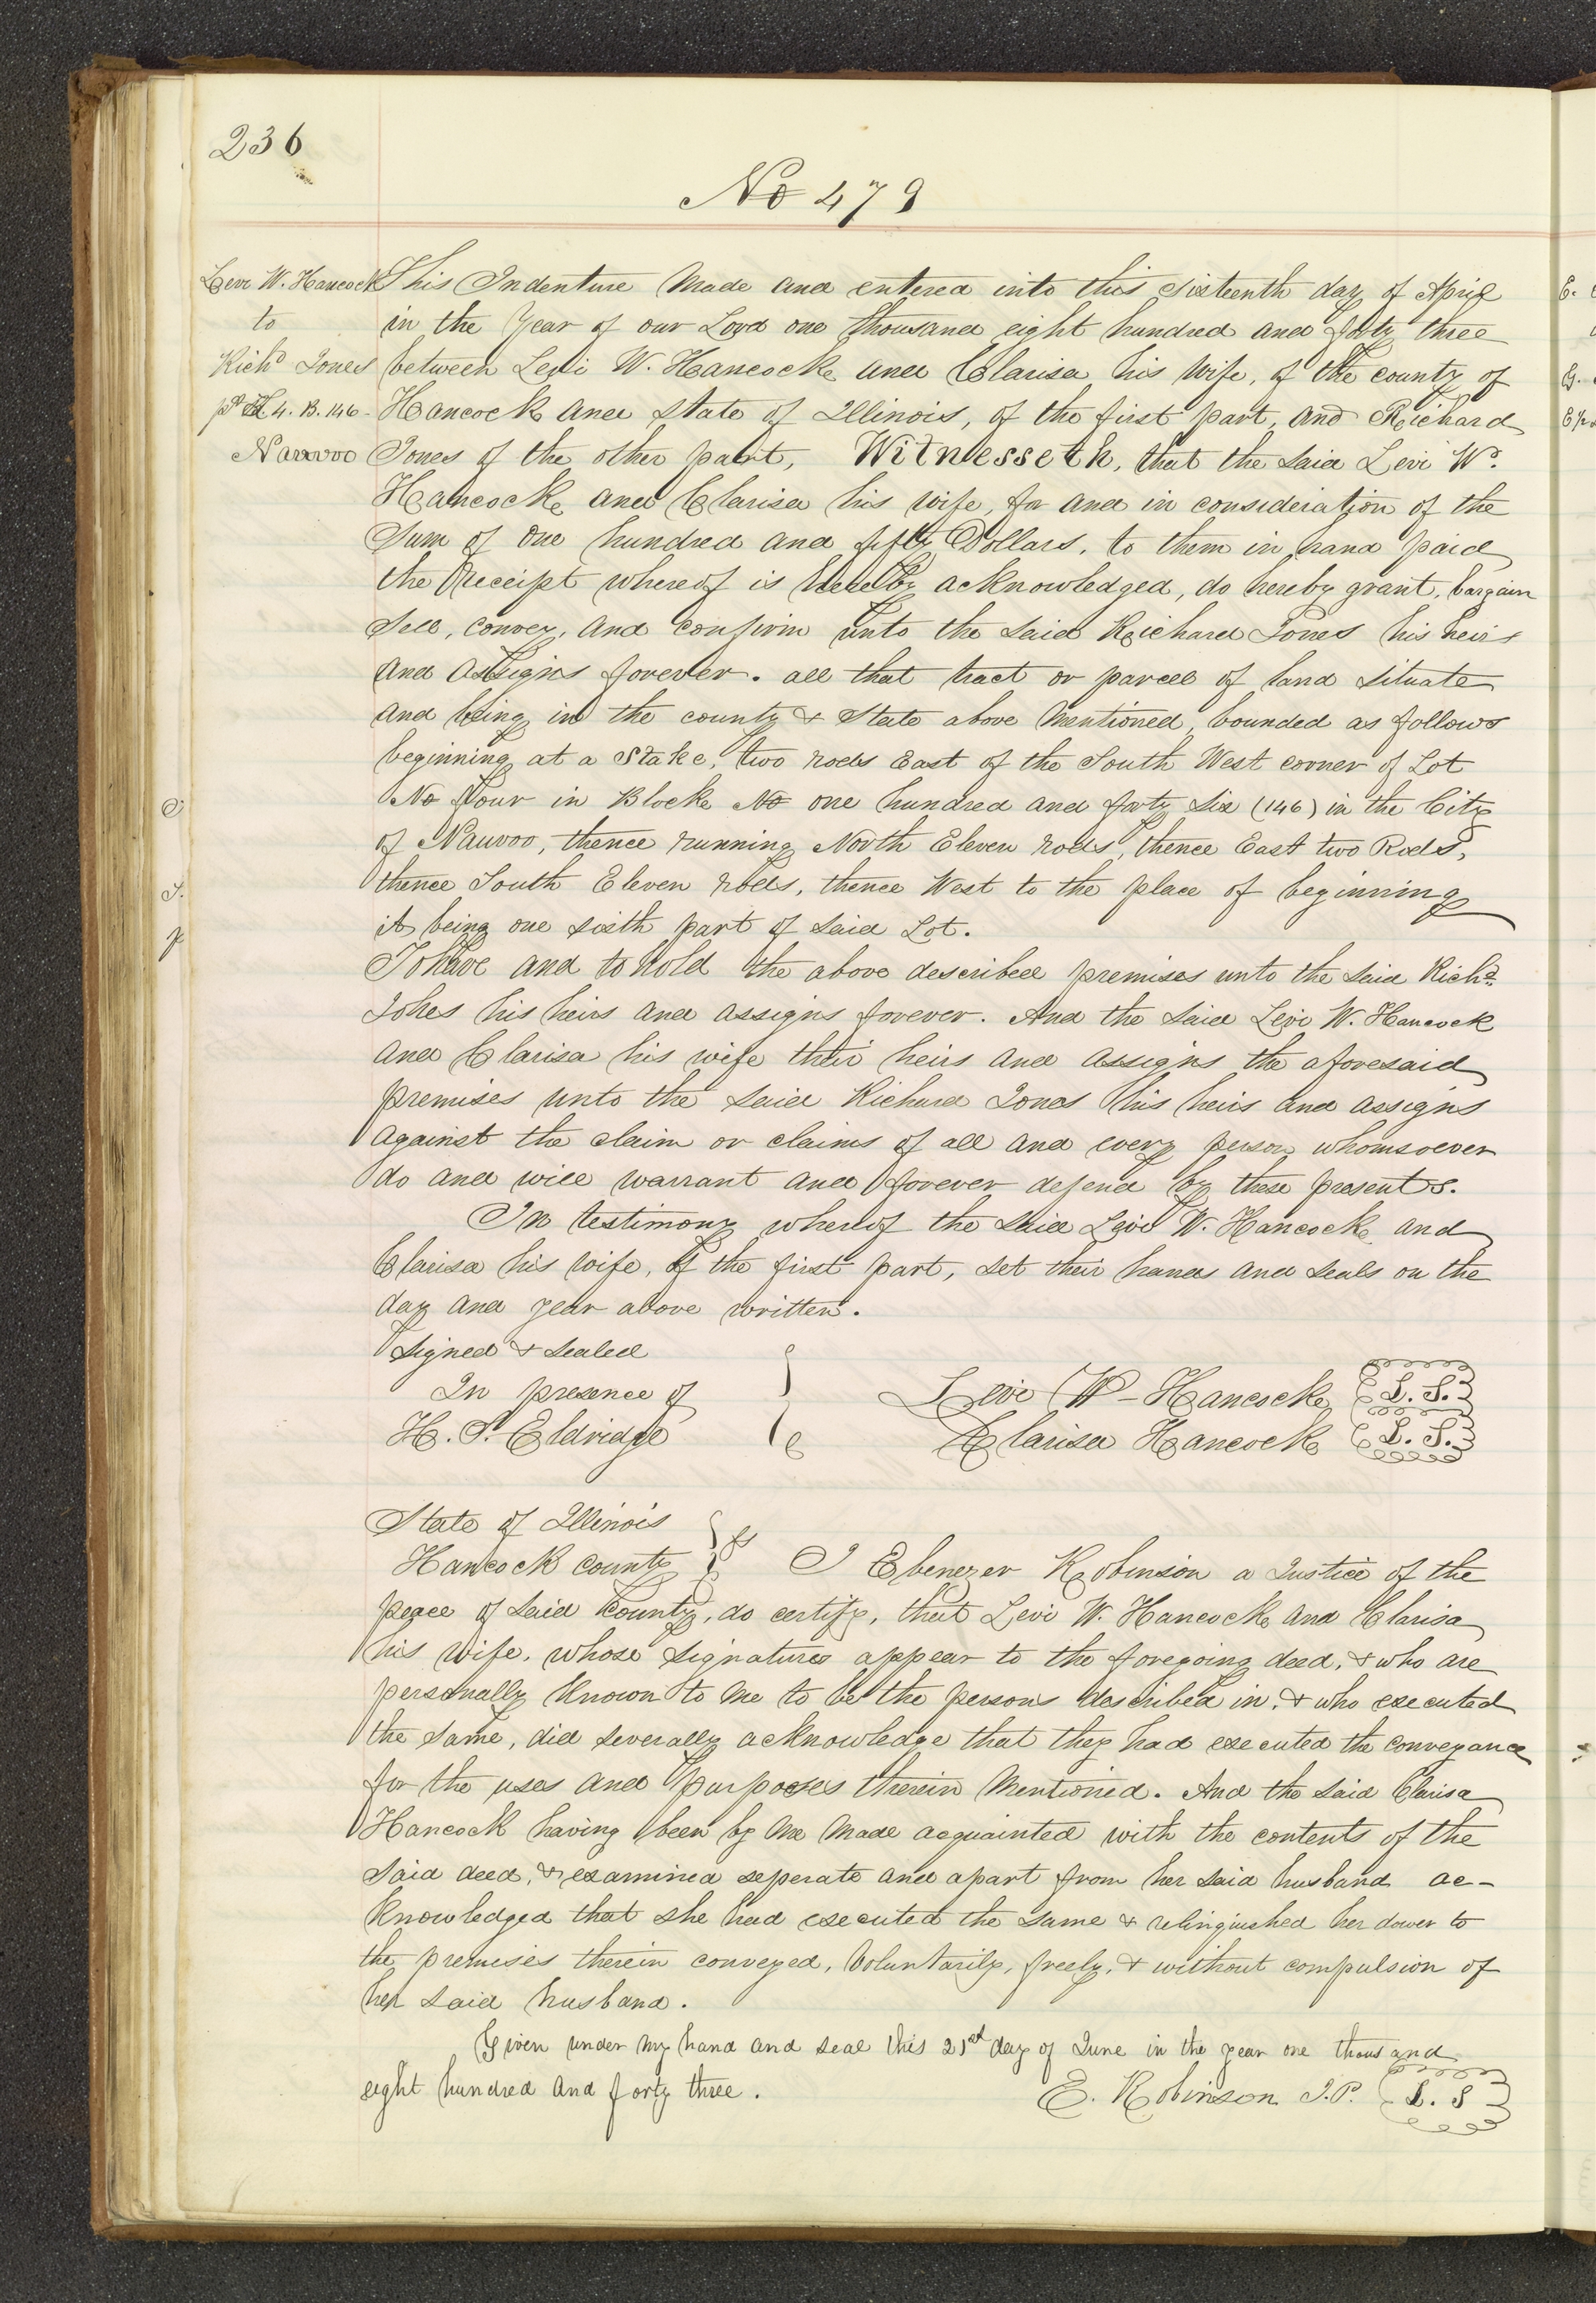 236
No 479
Levi W. Hancock
to
Richd Jones
pt L 4. B. 146-
Nauvoo
This Indenture Made and entered into this sixteenth day of April
in the Year of our Lord one thousand eight hundred and forty three
between Levi W. Hancock and Clarisa his wife, of the county of
Hancock and State of Illinois, of the first part, and Richard
Jones of the other part, Witnesseth, that the said Levi W.
Hancock and Clarisa his wife, for and in consideration of the
Sum of One hundred and fifty Dollars, to them in hand paid
the Receipt whereof is hereby acknowledged, do hereby grant, bargain
Sell, convey, and confirm unto the said Richard Jones his heirs
and assigns forever. all that tract or parcel of land situate
and being in the county & State above Mentioned, bounded as follows
beginning at a Stake, two rods East of the South West corner of Lot
No Four in Block No one hundred and forty six (146) in the City
of Nauvoo, thence running North Eleven rods, thence East two Rods,
thence South Eleven rods, thence West to the place of beginning
it being one sixth part of said Lot.
To have and to hold the above described premises unto the said Richd
Jones his heirs and assigns forever. And the said Levi W. Hancock
and Clarisa his wife their heirs and assigns the aforesaid
premises unto the said Richard Jones his heirs and assigns
against the claim or claims of all and every person whomsoever
do and will warrant and forever defend by these presents.
In testimony whereof the said Levi W. Hancock and
Clarisa his wife, of the first part, set their hands and seals on the
day and year above written.
Signed & sealed
In presence of
H. S. Eldridge
Levi W - Hancock L. S.
Clarisa Hancock L. S.
State of Illinois
Hancock county ss I Ebenezer Robinson a Justice of the
peace of said County, do certify, that Levi W. Hancock and Clarisa
his wife, whose signatures appear to the foregoing deed, & who are
personally Known to me to be the persons described in, & who executed
the same, did severally acknowledge that they had executed the conveyance
for the uses and purposes therein Mentioned. And the said Clarisa
Hancock having been by me made acquainted with the contents of the
said deed, & examined seperate and apart from her said husband ac-
knowledged that she had executed the same & relinquished her dower to
the premises therein conveyed, Voluntarily, freely, & without compulsion of
her said husband.
Given under my hand and seal this 21st day of June in the year one thousand
eight hundred and forty three.
E. Robinson J.P. L. S